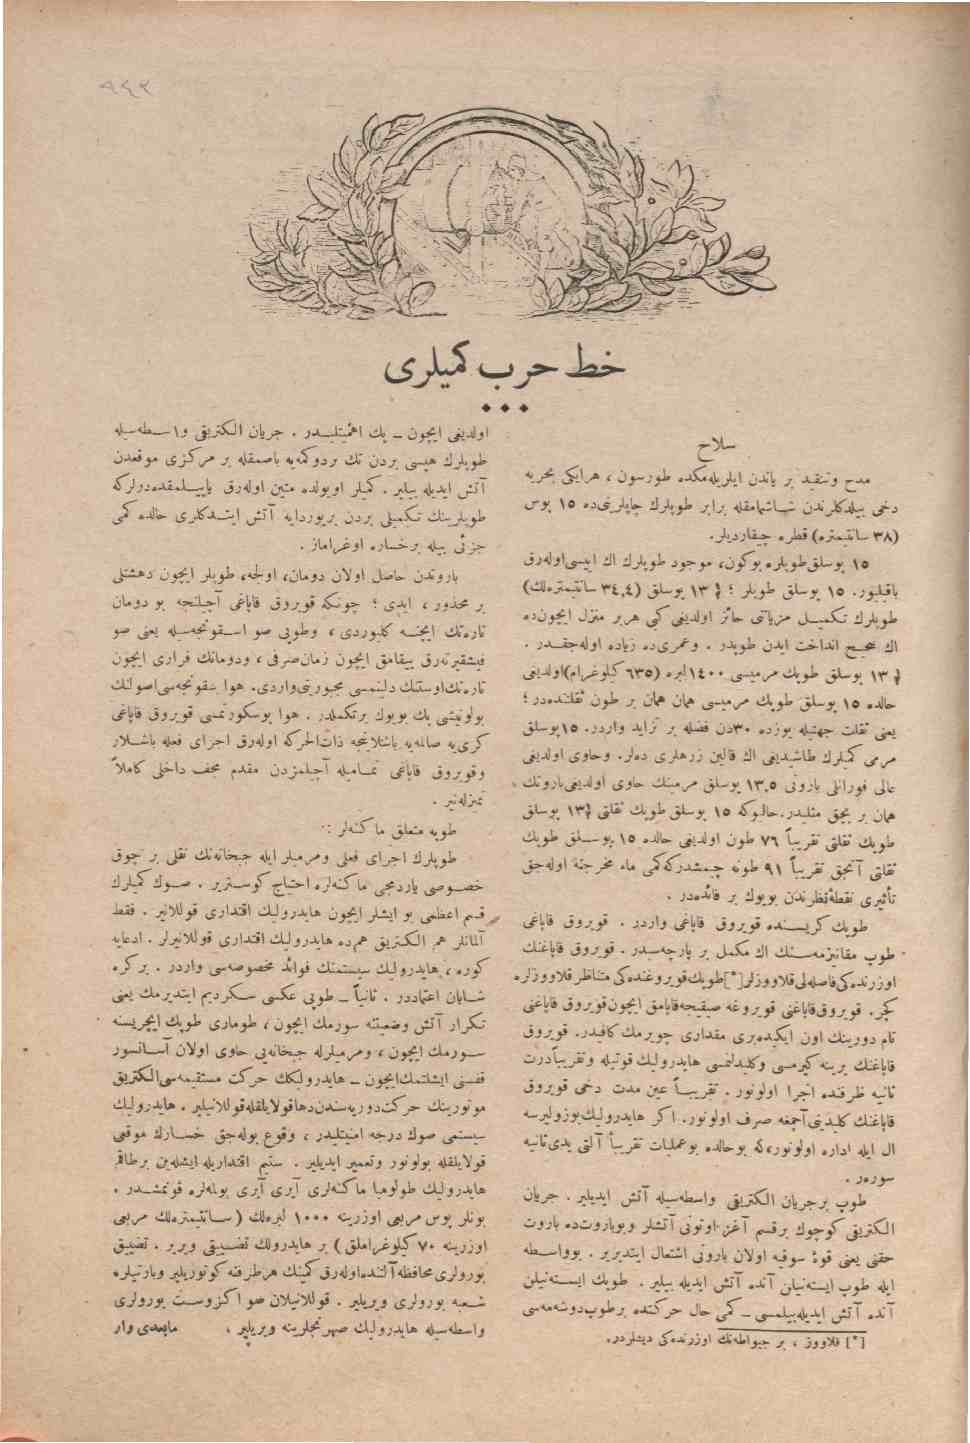 ٩٤٢
خط حرب كميلری
سلاح
مدح وتنقید بر یاندن ایلریله‌مكده طورسون ، هر ایكی بحریه
دخی بیلدكلرندن شاشمامقله برابر طوپلرك چاپلرینی‌ده ١٥ پوس
(٣٨ سانتیمتره) قطره چیقاردیلر.
١٥ پوسلق طوپلره بوكون، موجود طوپلرك اك ایسی اوله‌رق
باقیلیور. ١٥ پوسلق طوپلر ؛ ١٣ پوسلق (٣٤,٤ سانتیمتره‌لك)
طوپلرك تكمیل مزیاتی حائز اولدیغی كبی هربر منزل ایچون‌ده
اك صحیح انداخت ایدن طوپدر . وعمری‌ده زیاده اوله‌جقدر .
١٣ پوسلق طوپك مرمیسی ١٤٠٠ لبره (٦٣٥ كیلوغرام) اولدیغی
حالده ١٥ پوسلق طوپك مرمیسی همان همان بر طون ثقلتنده‌در ؛
یعنی ثقلت جهتیله یوزده ٣٠دن فضله بر تزاید واردر. ١٥ پوسلق
مرمی كمیلرك طاشیدیغی اك قالین زرهلری ده‌لر. وحاوی اولدیغی
عالی فورانلی باروتی ١٣,٥ پوسلق مرمینك حاوی اولدیغی باروتك
همان بر بچق مثلیدر. حالبوكه ١٥ پوسلق طوپك ثقلتی ١٣ پوسلق
طوپك ثقلتی تقریباً ٧٦ طون اولدیغی حالده ١٥ پوسلق طوپك
ثقلتی آنجق تقریباً ٩١ طونه چیقمشدركه كمی ماء مخرجنه اوله‌جق
تأثیری نقطهٔ‌نظرندن بویوك بر فائده‌در .
طوپك كریسنده قویروق قاپاغی واردر . قویروق قاپاغی
طوپ مقانیزمه‌سنك اك مكمل بر پارچه‌سیدر . قویروق قاپاغنك
اوزرنده‌كی فاصله‌لی قلاووزلر [*] طوپك قویروغنده‌كی متناظر قلاووزلره
كچر. قویروق قاپاغنی قویروغه صیقیجه قاپامق ایچون قویروق قاپاغنی
تام دورینك اون ایكیده‌بری مقداری چویرمك كافیدر. قویروق
قاپاغنك یرینه كیرمسی وكلیدلنمسی هایدرولیك قوتیله وتقریباً درت
ثانیه ظرفنده اجرا اولونور . تقریباً عین مدت دخی قویروق
قاپاغنك كلیدینی آچمغه صرف اولونور. اكر هایدرولیك بوزولیرسه
ال ایله اداره اولونور، كه بوحالده بوعملیات تقریباً آلتی یدی ثانیه
سوره‌ر .
طوپ برجریان الكتریقی واسطه‌سیله آتش ایدیلیر . جریان
الكتریقی كوچوك برقسم آغز اوتونی آتشلر وبوباروت‌ده باروت
حقنی یعنی قوهٔ سوقیه اولان باروتی اشتعال ایتدیریر . بوواسطه
ایله طوپ ایسته‌نیلن آنده آتش ایدیله بیلیر . طوپك ایسته‌نیلن
آنده آتش ایدیله‌بیلمسی ـ كمی حال حركتده برطوپ دوشه‌مه‌سی
[*] قلاووز ، بر جیواطه‌نك اوزرنده‌كی دیشلردر.
اولدیغی ایچون ـ پك اهمیتلیدر . جریان الكتریقی واسطه‌سیله
طوپلرك هپسی بردن تك بردوكمه‌یه باصمقله بر مركزی موقعدن
آتش ایدیله بیلیر . كمیلر اویولده متین اوله‌رق یاپیلمقده‌درلركه
طوپلرینك تكمیلی بردن بربوردایه آتش ایتدكلری حالده كمی
جزئی بیله برخساره اوغراماز .
باروتدن حاصل اولان دومان، اولجه، طوپلر ایچون دهشتلی
بر محذور ، ایدی ؛ چونكه قویروق قاپاغی آچیلنجه بو دومان
تاره‌تك ایچنه كلیوردی ، وطوپی صو اسفونجه‌سیله یعنی صو
فیشقیرته‌رق ییقامق ایچون زمان صرفی ، ودومانك فراری ایچون
تاره‌تك اوستنك دلینمسی مجبوریتی واردی. هوا سفونجه‌سی اصولنك
بولونیشی پك بویوك برتكملدر . هوا پوسكورتمسی قویروق قاپاغی
كری‌یه صالمه‌یه باشلانجه ذات‌الحركه اوله‌رق اجرای فعله باشلار
وقویروق قاپاغی تمامیله آچیلمزدن مقدم مجوف داخلی كاملاً
تمیزله‌نیر .
طوپه متعلق ماكنه‌لر :
طوپلرك اجرای فعلی ومرمیلر ایله جبخانه‌نك نقلی بر چوق
خصوصی یاردمجی ماكنه‌لره احتیاج كوستریر . صوك كمیلرك
قسم اعظمی بو ایشلر ایچون هایدرولیك اقتداری قوللانیر . فقط
آلمانلر هم الكتریق هم‌ده هایدرولیك اقتداری قوللانیرلر . ادعایه
كوره ، هایدرولیك سیستمنك فوائد مخصوصه‌سی واردر . بركره
شایان اعتماددر . ثانیاً ـ طوپی عكسی سكردیم ایتدیرمك یعنی
تكرار آتش وضعیتنه سورمك ایچون ، طوماری طوپك ایچریسنه
سورمك ایچون ، ومرمیلرله جبخانه‌یی حاوی اولان آسانسور
قفسنی ایشلتمك ایچون ـ هایدرولیكك حركت مستقیمه‌سی الكتریق
موتورینك حركت دوریه‌سندن دها قولایلقله قوللانیلیر . هایدرولیك
سیستمی صوك درجه امنیتلیدر ، وقوع بوله‌جق خسارك موقعی
قولایلقله بولونور وتعمیر ایدیلیر . ستیم اقتداریله ایشله‌ین برطاقم
هایدرولیك طولومبا ماكنه‌لری آیری آیری بولمه‌لره قونمشدر .
بونلر پوس مربعی اوزرینه ١٠٠٠ لبره‌لك ( سانتیمتره‌لك مربعی
اوزرینه ٧٠ كیلوغراملق ) بر هایدرولیك تضییقی ویریر . تضییق
بورولری محافظه آلتنده اوله‌رق كمینك هرطرفنه كوتورولیر وباربتلره
شعبه بورولری ویریلیر . قوللانیلان صو اكزوست بورولری
واسطه‌سیله هایدرولیك صهرنجلرینه ویریلیر ، مابعدی وار